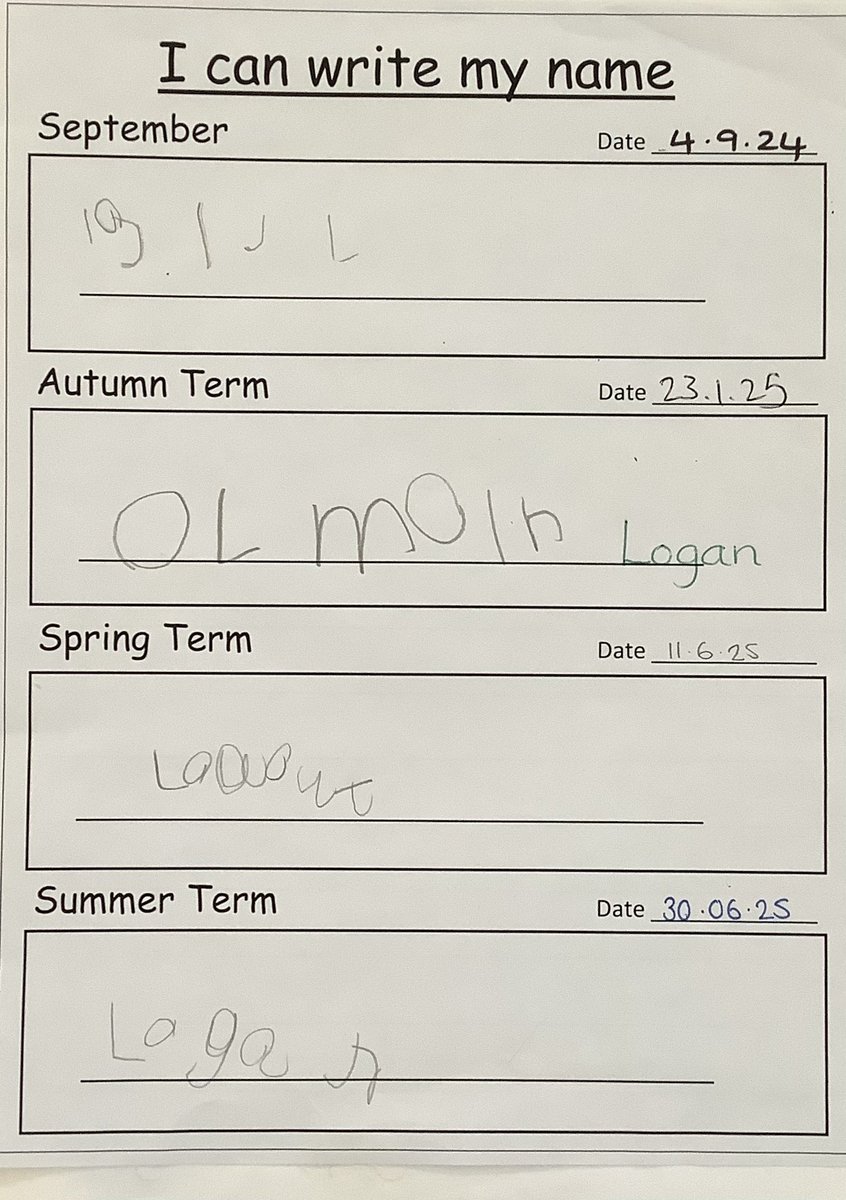 I can write my name
September
Date 4.9.24
Autumn Term
Date 23.1.25
OL mOIn Logan
Spring Term
Date 11.6.25
Summer Term
Date 30.06.25
Logan